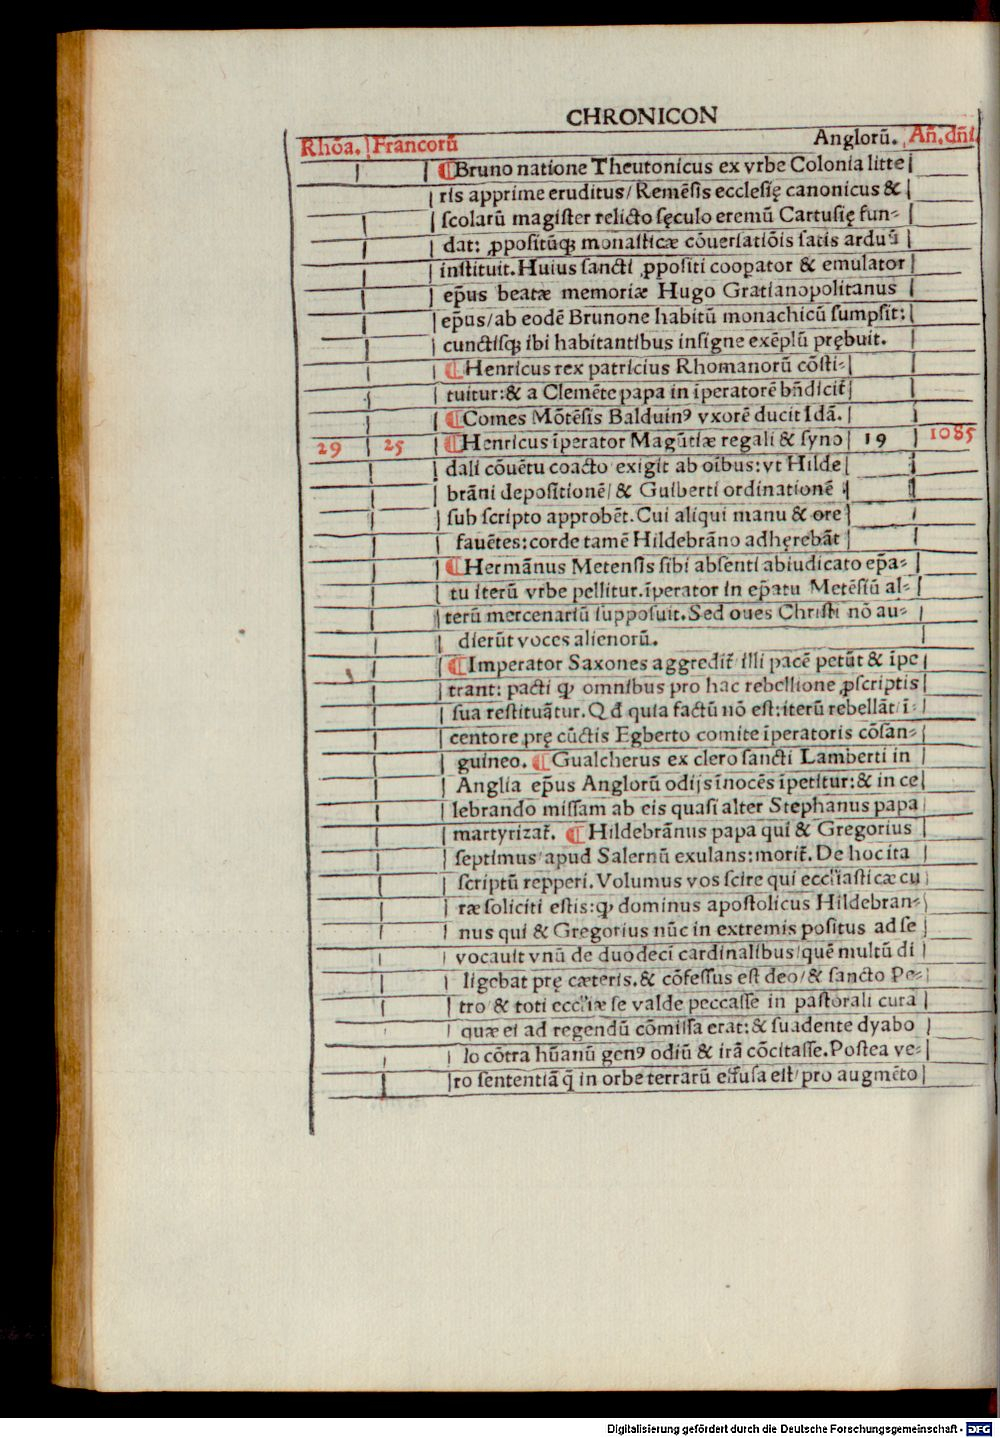 CHRONICON
Rhõa. Francorũ Anglorũ. Añ. dñi.
¶Bruno natione Theutonicus ex vrbe Colonia litte
ris apprime eruditus/ Remẽsis ecclesię canonicus &
scolarũ magister relicto sęculo eremũ Cartusię fun⸗
dat: ꝓpositũqꝫ monasticæ cõuersatiõis satis arduũ
instituit. Huius sancti ꝓpositi coopator & emulator
ep̃us beatæ memoriæ Hugo Gratianopolitanus
ep̃us/ab eodẽ Brunone habitũ monachicũ sumpsit:
cunctisqꝫ ibi habitantibus insigne exẽplũ prębuit.
¶Henricus rex patricius Rhomanorũ cõsti⸗
tuitur:& a Clemẽte papa in ĩperatorẽ bñdicit᷑
¶Comes Mõtẽsis Balduinꝰ vxorẽ ducit Idã.
29 25 ¶Henricus ĩperator Magũtiæ regali & syno 19 1085
dali cõuẽtu coacto exigit ab oĩbus:vt Hilde
brãni depositionẽ/ & Guiberti ordinationẽ
sub scripto approbẽt. Cui aliqui manu & ore
fauẽtes:corde tamẽ Hildebrãno adhęrebãt
¶Hermãnus Metensis sibi absenti abiudicato ep̃a⸗
tu iterũ vrbe pellitur. ĩperator in ep̃atu Metẽsiũ al⸗
terũ mercenariũ supposuit. Sed oues Christi nõ au⸗
dierũt voces alienorũ.
¶Imperator Saxones aggredit᷑ illi pacẽ petũt & ĩpe
trant: pacti ꝙ omnibus pro hac rebellione ꝓscriptis
sua restituãtur. Qđ quia factũ nõ est:iterũ rebellãt/ĩ⸗
centore prę cũctis Egberto comite ĩperatoris cõsan⸗
guineo. ¶Gualcherus ex clero sancti Lamberti in
Anglia ep̃us Anglorũ odijs ĩnocẽs ĩpetitur:& in ce
lebrando missam ab eis quasi alter Stephanus papa
martyrizat᷑. ¶Hildebrãnus papa qui & Gregorius
septimus/apud Salernũ exulans:morit᷑. De hoc ita
scriptũ repperi. Volumus vos scire qui eccl'iasticæ cu
ræ soliciti estis:ꝙ dominus apostolicus Hildebran⸗
nus qui & Gregorius nũc in extremis positus ad se
vocauit vnũ de duodeci cardinalibus/quẽ multũ di
ligebat prę cæteris. & cõfessus est deo/& sancto Pe⸗
tro & toti eccl'iæ se valde peccasse in pastorali cura
quæ ei ad regendũ cõmissa erat:& suadente dyabo
lo cõtra hũanũ genꝰ odiũ & irã cõcitasse. Postea ve⸗
ro sententiã q̃ in orbe terrarũ effusa est/pro augmẽto
Digitalisierung gefördert durch die Deutsche Forschungsgemeinschaft - DFG